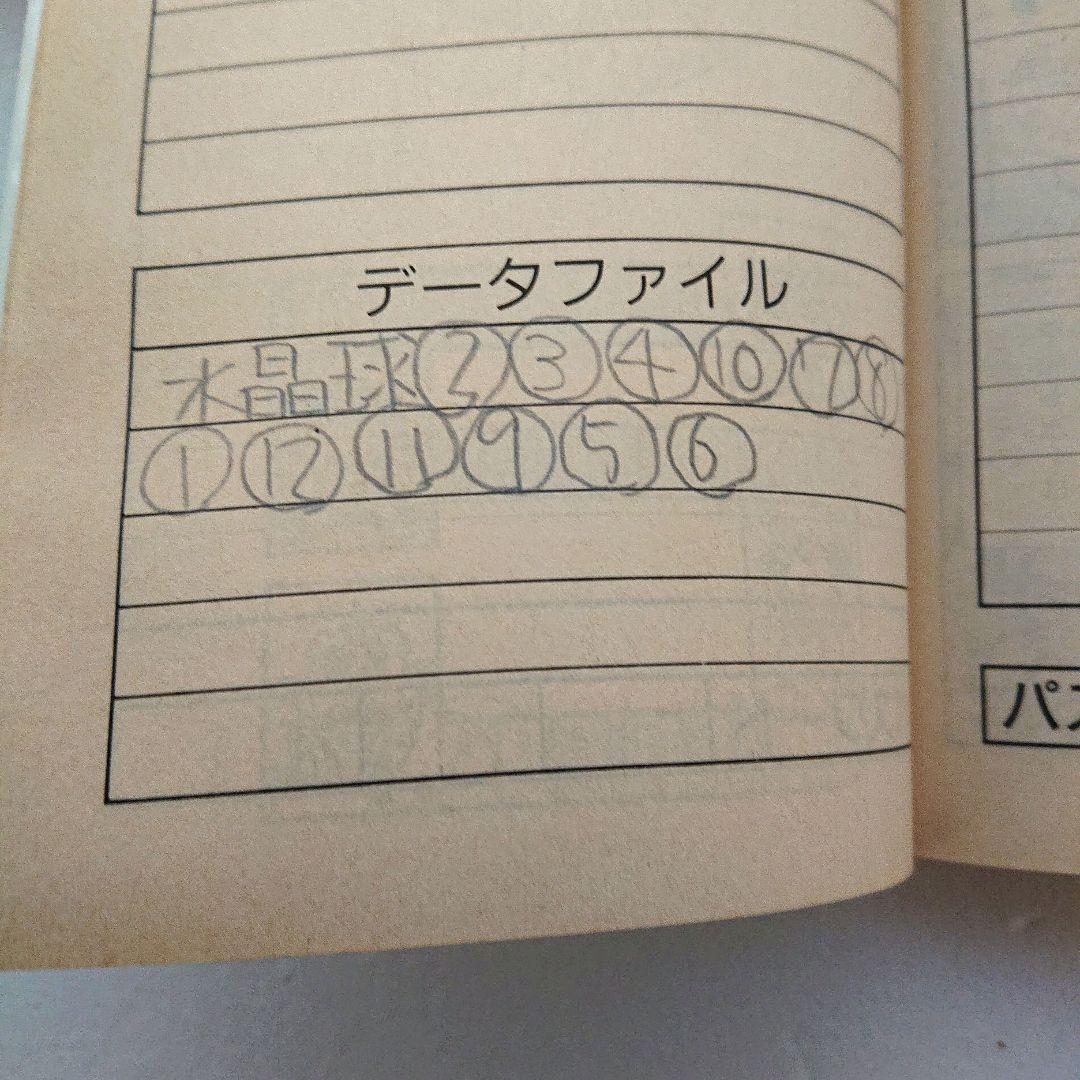 データファイル
水晶球②③④⑩⑦⑧
①⑫⑪⑨⑤⑥
パス